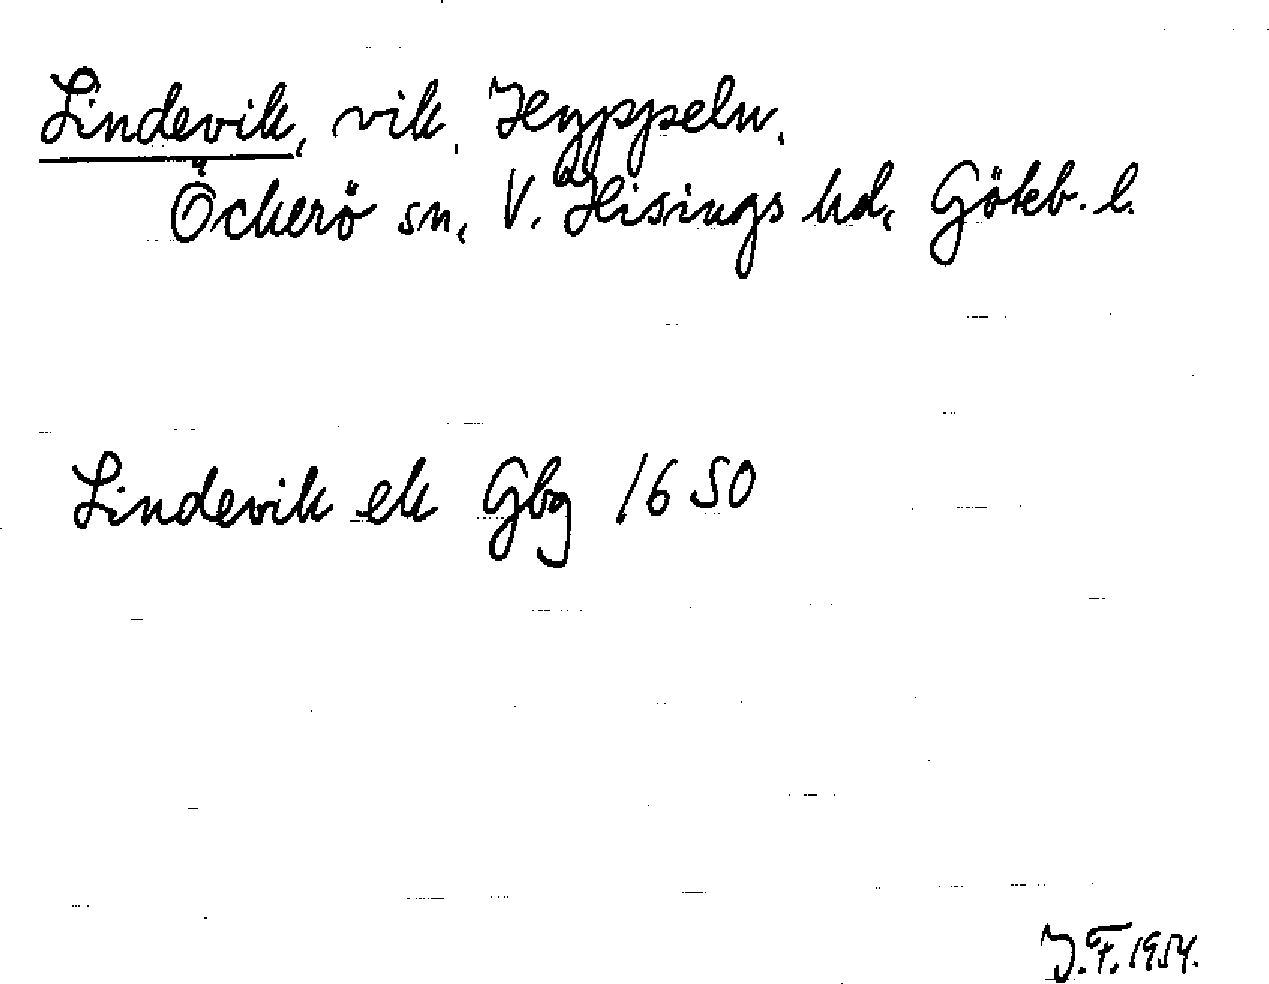 Lindevik, vik, Hyppeln,
Öckerö sn, V. Hisings hd, Göteb. l.
Lindevik ek Gbg 1650
J.F. 1954.